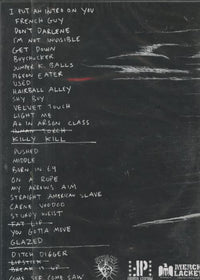 I PUT AN INTRO ON YOU
FRENCH GUY
DON'T DARLENE
I'M NOT INVISIBLE
GET DOWN
GUYCHUCKER
JUMPER K. BALLS
PIGEON EATER
USED
HAIRBALL ALLEY
SHY BOY
VELVET TOUCH
LIGHT ME
AD IN ARSON CLASS
HUMAN TORCH
KILLY KILL
PUSHED
MIDDLE
BORN IN 69
ON A ROPE
MY ARROWS AIM
STRAIGHT AMERICAN SLAVE
CARNE VOODOO
STURDY WRIST
FAT LIP
YOU GOTTA MOVE
GLAZED
DITCH DIGGER
LIPSTICK
BREAK IT UP
COME SEE COME SAW
MERCH
LACKEY